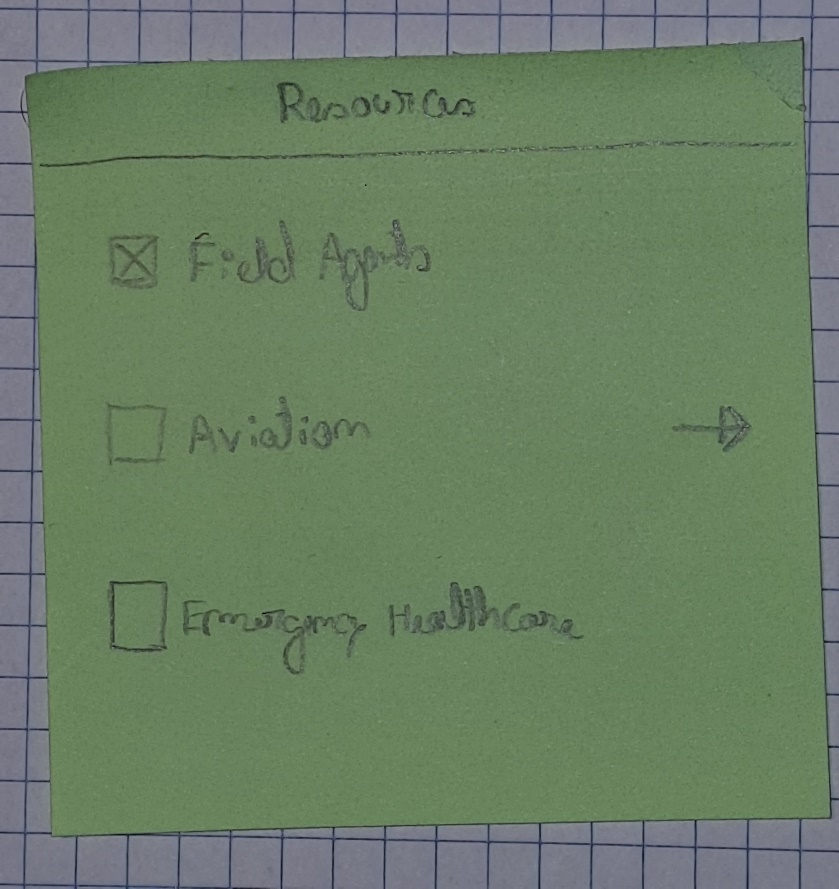 Resources
Field Agents
Aviation
Emergency Healthcare